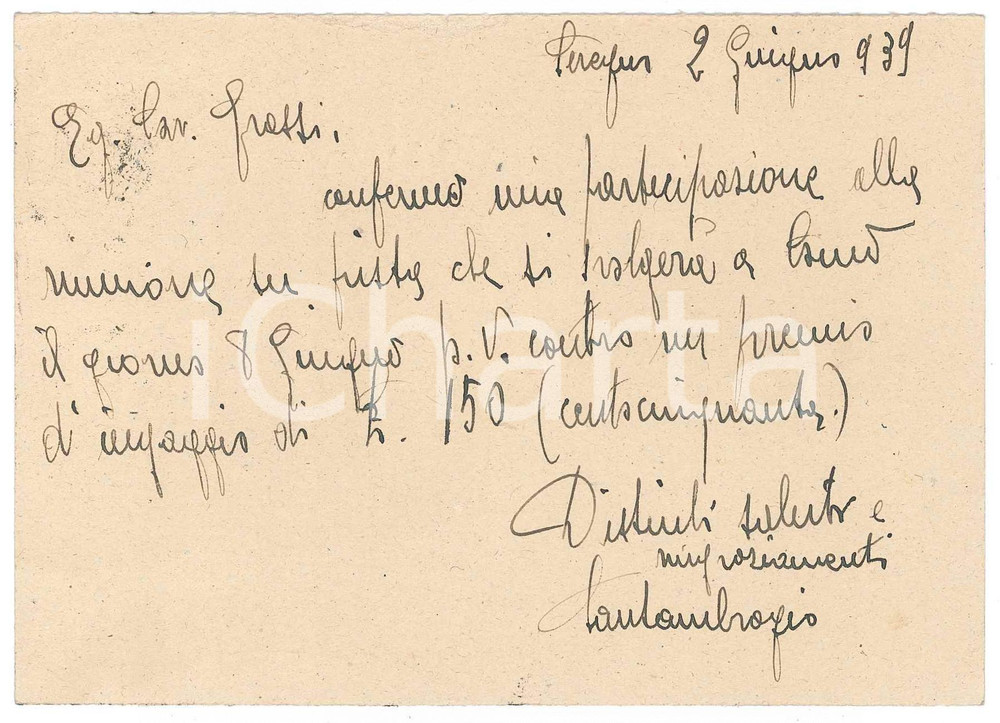 Seregno 2 Giugno 939
Eg. Cav. Grassi,
confermo mia partecipazione alla
riunione su pista che si svolgerà a Cantù
il giorno 8 Giugno p. V. contro un premio
d'ingaggio di £. 150 (centocinquanta.)
Distinti saluti e
ringraziamenti
Santambrogio
iCharta